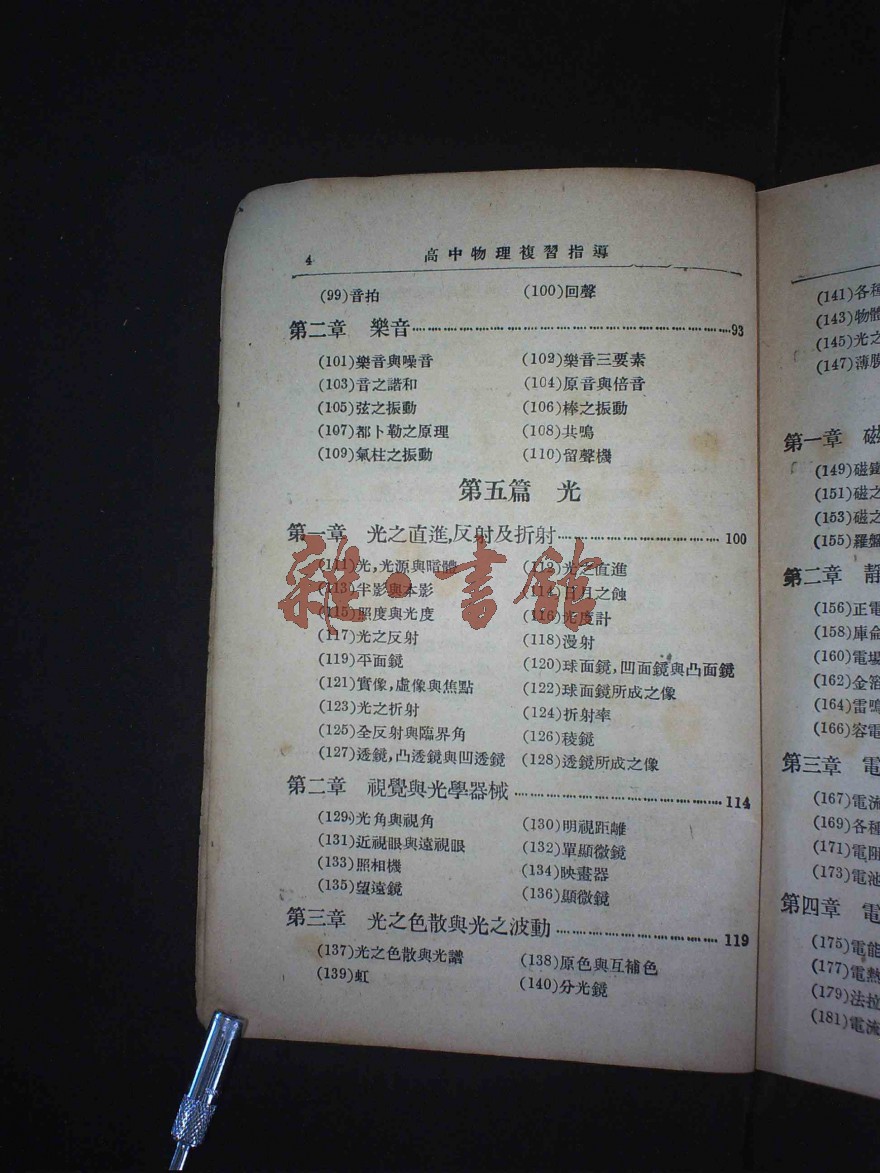 4 高中物理複習指導
(99)音拍 (100)回聲
第二章 樂音 93
(101)樂音與噪音 (102)樂音三要素
(103)音之諧和 (104)原音與倍音
(105)弦之振動 (106)棒之振動
(107)都卜勒之原理 (108)共鳴
(109)氣柱之振動 (110)留聲機
第五篇 光
第一章 光之直進,反射及折射 100
(111)光,光源與暗體 (112)光之直進
(113)半影與本影 (114)日月之蝕
(115)照度與光度 (116)光度計
(117)光之反射 (118)漫射
(119)平面鏡 (120)球面鏡,凹面鏡與凸面鏡
(121)實像,虛像與焦點 (122)球面鏡所成之像
(123)光之折射 (124)折射率
(125)全反射與臨界角 (126)稜鏡
(127)透鏡,凸透鏡與凹透鏡 (128)透鏡所成之像
第二章 視覺與光學器械 114
(129)光角與視角 (130)明視距離
(131)近視眼與遠視眼 (132)單顯微鏡
(133)照相機 (134)映畫器
(135)望遠鏡 (136)顯微鏡
第三章 光之色散與光之波動 119
(137)光之色散與光譜 (138)原色與互補色
(139)虹 (140)分光鏡
雜·書館
(141)各種
(143)物體
(145)光之
(147)薄膜
第一章 磁
(149)磁鐵
(151)磁之
(153)磁之
(155)羅盤
第二章 靜
(156)正電
(158)庫侖
(160)電場
(162)金箔
(164)雷鳴
(166)容電
第三章 電
(167)電流
(169)各種
(171)電阻
(173)電池
第四章 電
(175)電能
(177)電熱
(179)法拉
(181)電流